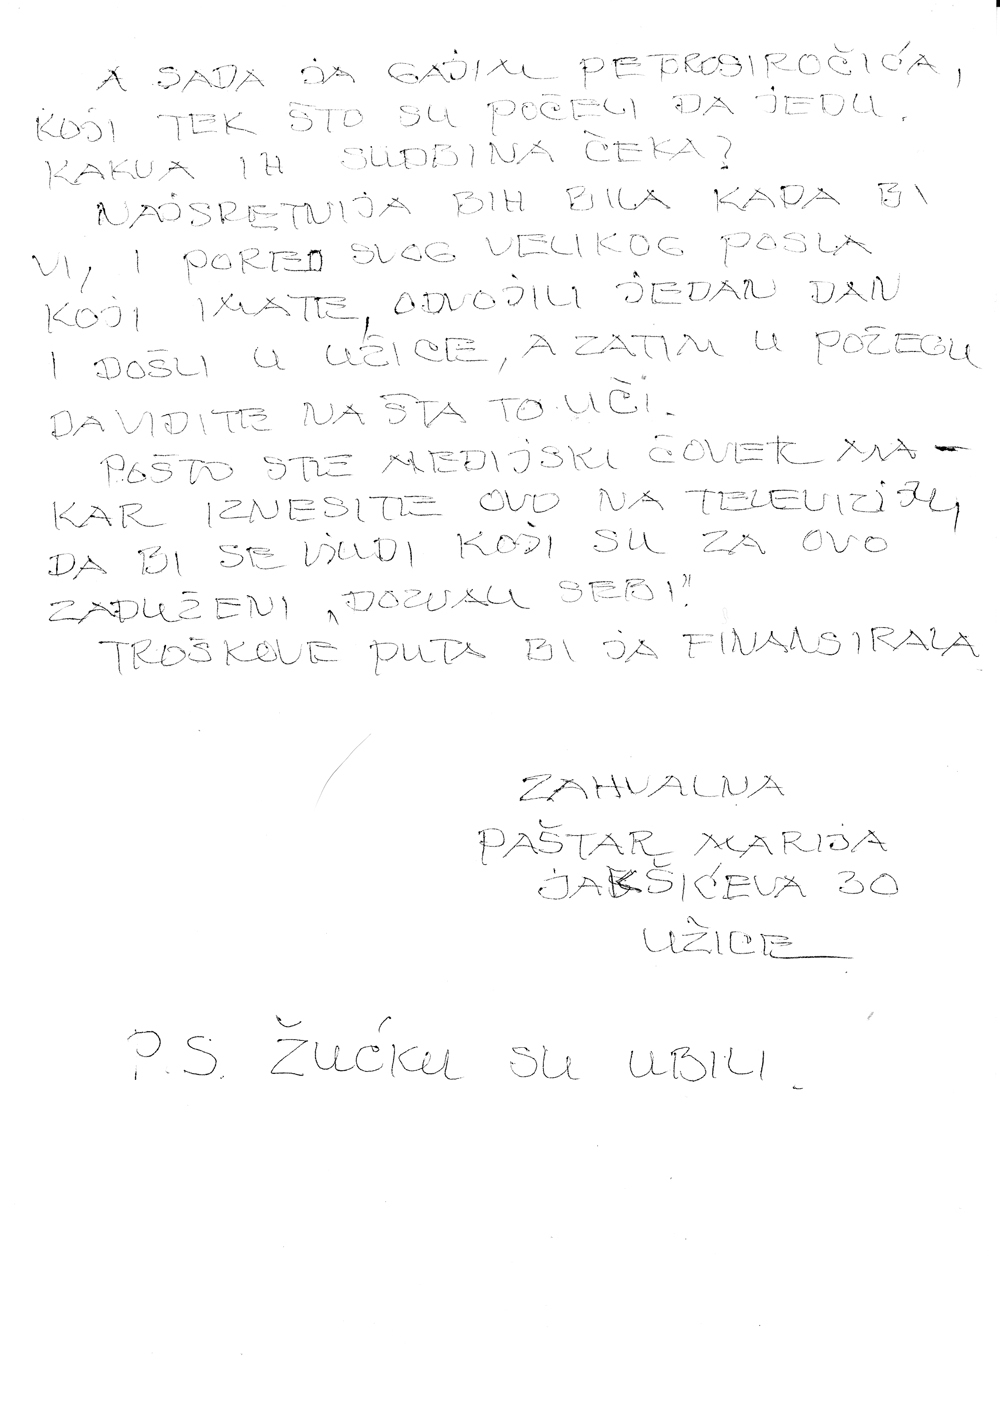 A SADA JA GAJIM PETOROSIROČIĆA,
KOJI TEK ŠTO SU POČELI DA JEDU.
KAKVA IH SUDBINA ČEKA?
NAJSRETNIJA BIH BILA KADA BI
VI, I PORED SVOG VELIKOG POSLA
KOJI IMATE, ODVOJILI JEDAN DAN
I DOŠLI U UŽICE, A ZATIM U POŽEGU
DA VIDITE NA ŠTA TO LIČI.
POŠTO STE MEDIJSKI ČOVEK MA-
KAR IZNESITE OVO NA TELEVIZIJU,
DA BI SE LJUDI KOJI SU ZA OVO
ZADUŽENI „DOZVALI SEBI".
TROŠKOVE PUTA BI JA FINANSIRALA
ZAHVALNA
PAŠTAR MARIJA
JAKŠIĆEVA 30
UŽICE
P.S. ŽUĆKU SU UBILI.